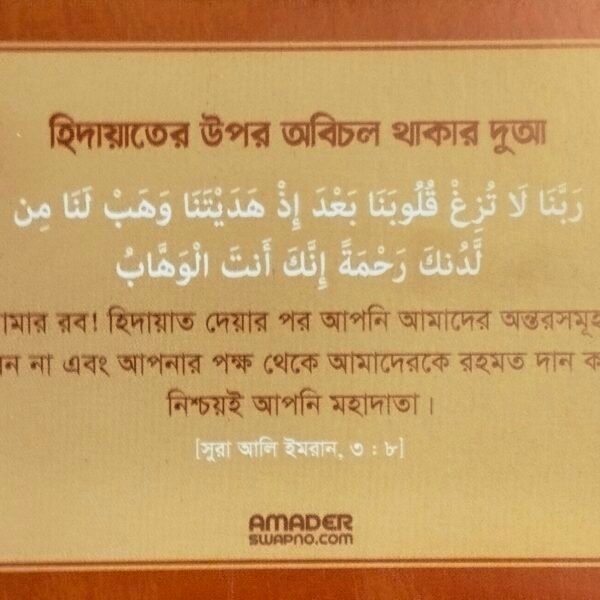 হিদায়াতের উপর অবিচল থাকার দুআ
رَبَّنَا لَا تُزِغْ قُلُوبَنَا بَعْدَ إِذْ هَدَيْتَنَا وَهَبْ لَنَا مِن
لَّدُنكَ رَحْمَةً إِنَّكَ أَنتَ الْوَهَّابُ
রব! হিদায়াত দেয়ার পর আপনি আমাদের অন্তরসমূহ
না এবং আপনার পক্ষ থেকে আমাদেরকে রহমত দান
নিশ্চয়ই আপনি মহাদাতা।
[সুরা আলি ইমরান, ৩ : ৮]
AMADER
SWAPNO.COM